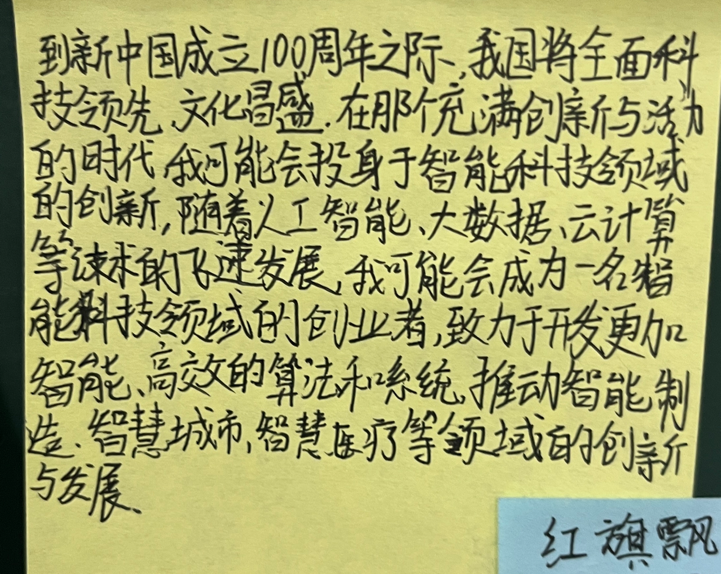 到新中国成立100周年之际,我国将全面科
技领先,文化昌盛.在那个充满创新与活力
的时代,我可能会投身于智能科技领域
的创新,随着人工智能、大数据、云计算
等技术的飞速发展,我可能会成为一名智
能科技领域的创业者,致力于开发更加
智能、高效的算法和系统,推动智能制
造、智慧城市,智慧医疗等领域的创新
与发展、
红旗飘